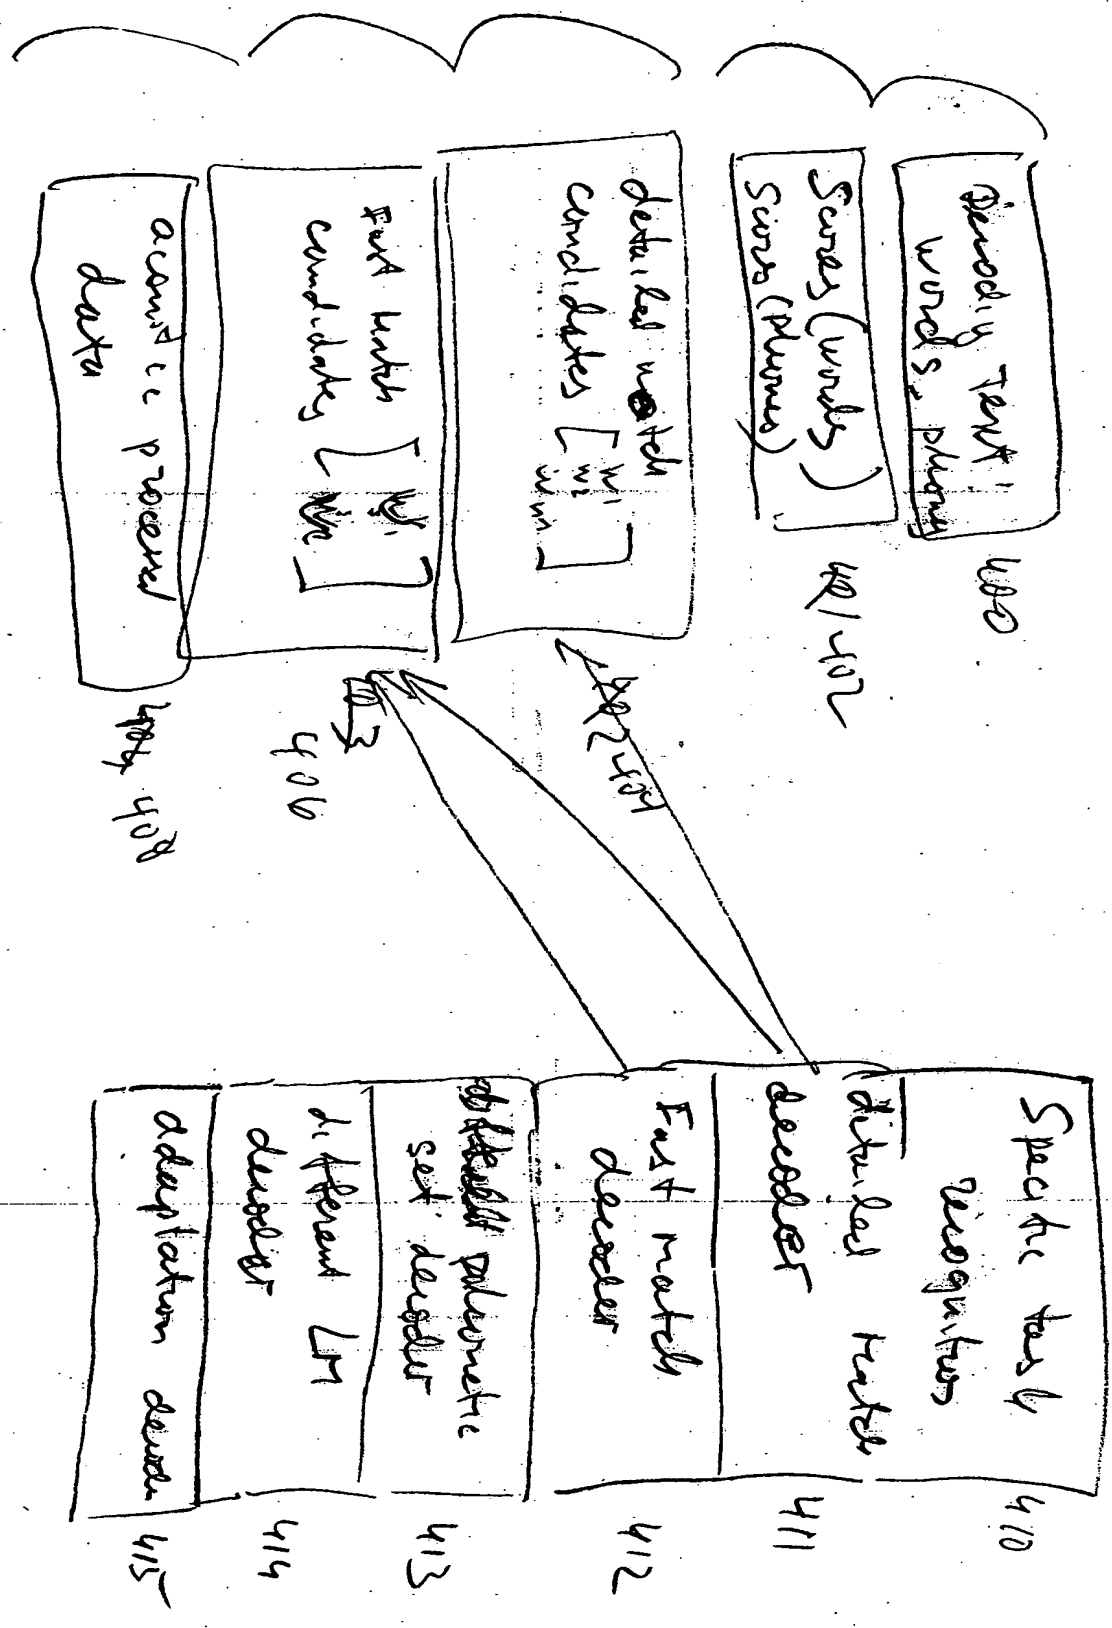 Decody Text:
words, phones
400
Scores (words)
Scores (phones)
401 402
detailed match
candidates [ w1
w2
wm ]
404
Fast Match
candidates [ ]
403
406
acoustic processed
data
408
Specific task
recognition
410
ditailed Match
decoder
411
Fast match
decoder
412
phonetic
set decoder
413
different LM
decoder
414
adaptation decoder
415